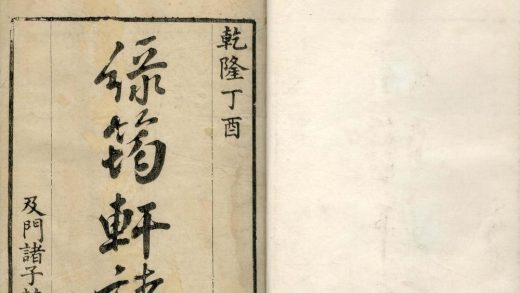 乾隆丁酉
綠筠軒詩
及門諸子